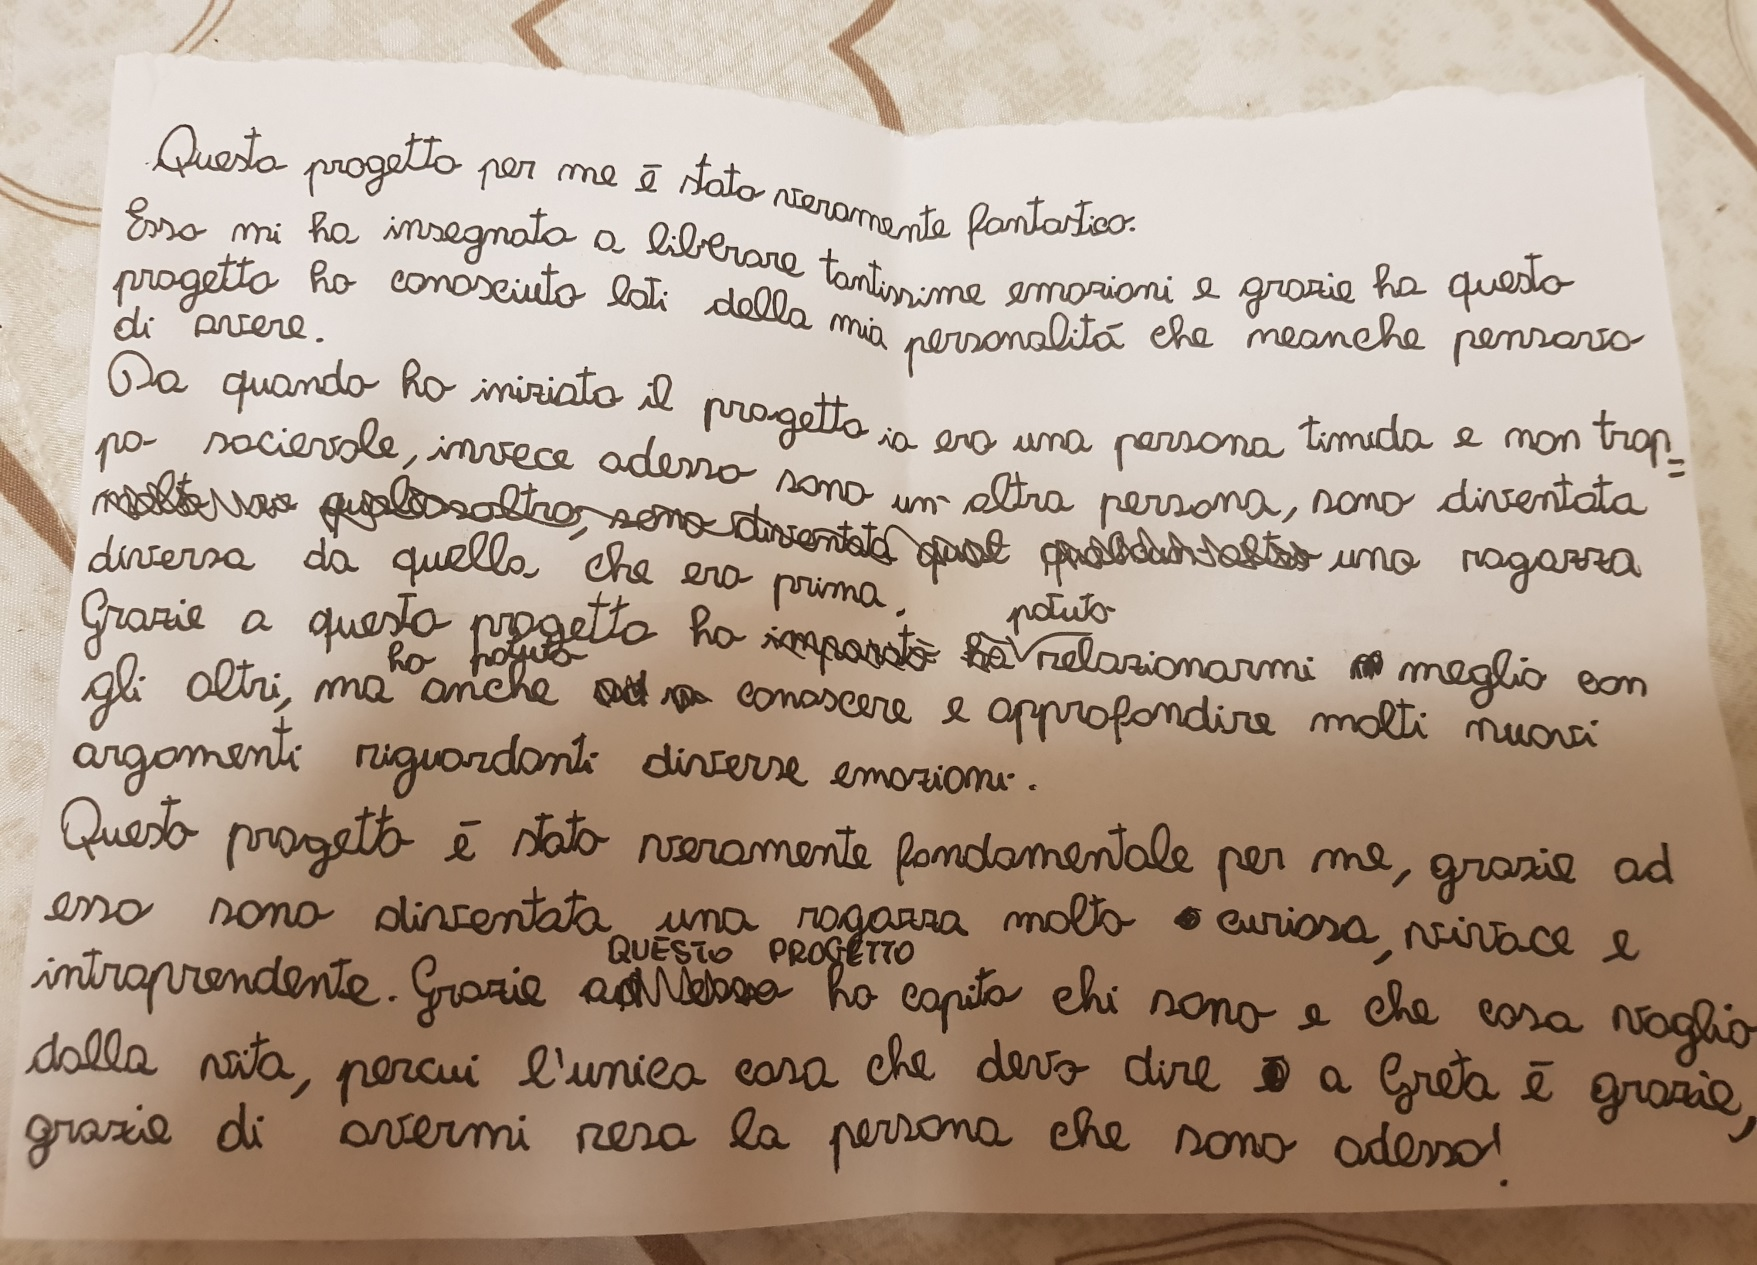 Questo progetto per me è stato veramente fantastico.
Esso mi ha insegnato a liberare tantissime emozioni e grazie ha questo
progetto ho conosciuto lati della mia personalità che neanche pensavo
di avere.
Da quando ho iniziato il progetto io ero una persona timida e non trop=
po socievole, invece adesso sono un altra persona, sono diventata
sono diventata una ragazza
diversa da quella che ero prima.
potuto
Grazie a questo progetto ho imparato ha relazionarmi meglio con
ho potuto
gli altri, ma anche conoscere e approfondire molti nuovi
argomenti riguardanti diverse emozioni.
Questo progetto è stato veramente fondamentale per me, grazie ad
esso sono diventata una ragazza molto curiosa, vivace e
QUESTO PROGETTO
intraprendente. Grazie ad esso ho capito chi sono e che cosa voglio
dalla vita, percui l'unica cosa che devo dire a Greta è grazie,
grazie di avermi resa la persona che sono adesso!